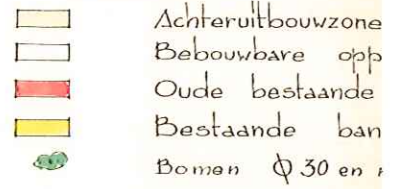 Achteruitbouwzone
Bebouwbare opp
Oude bestaande
Bestaande ban
Bomen ϕ 30 en